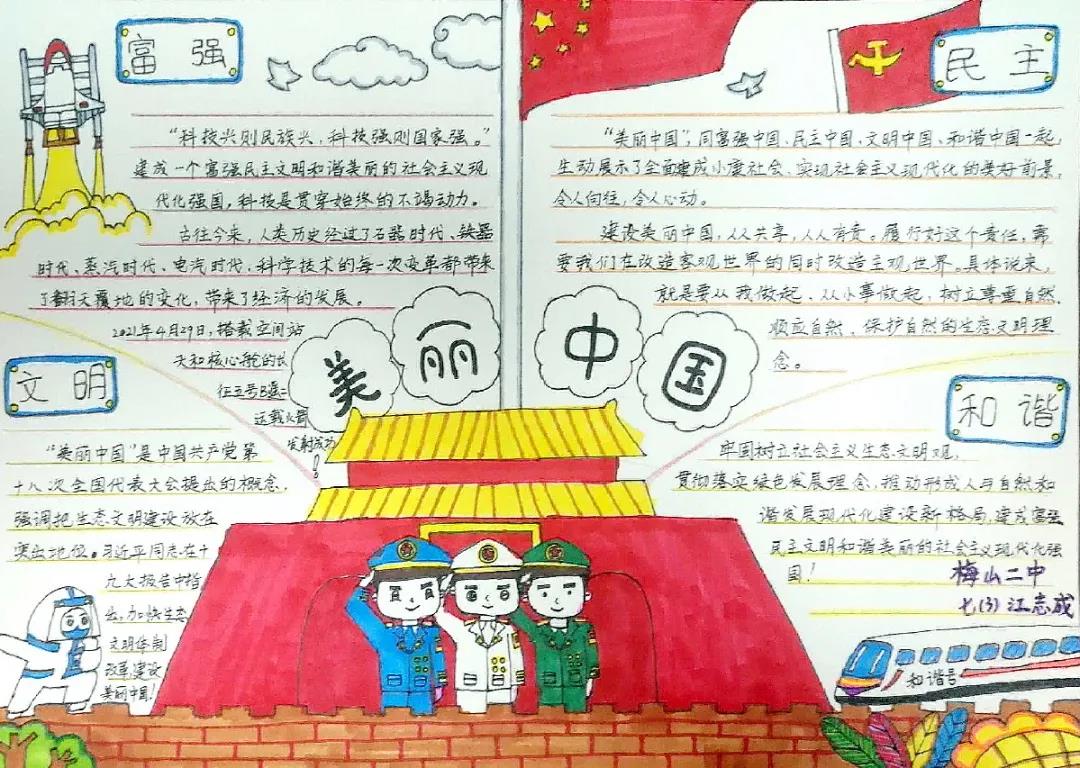 富强
“科技兴则民族兴，科技强则国家强。”
建成一个富强民主文明和谐美丽的社会主义现
代化强国，科技是贯穿始终的不竭动力。
古往今来，人类历史经过了石器时代、铁器
时代、蒸汽时代、电汽时代，科学技术的每一次变革都带来
了翻天覆地的变化，带来了经济的发展。
2021年4月29日，搭载空间站
天和核心舱的长
征五号B遥二
运载火箭
发射成功
！
民主
“美丽中国”，同富强中国、民主中国、文明中国、和谐中国一起，
生动展示了全面建成小康社会、实现社会主义现代化的美好前景，
令人向往，令人心动。
建设美丽中国，人人共享，人人有责。履行好这个责任，需
要我们在改造客观世界的同时改造主观世界。具体说来，
就是要从我做起、从小事做起，树立尊重自然、
顺应自然、保护自然的生态文明理
念。
美丽中国
文明
“美丽中国”是中国共产党第
十八次全国代表大会提出的概念，
强调把生态文明建设放在
突出地位。习近平同志在十
九大报告中指
出，加快生态
文明体制
改革，建设
美丽中国！
和谐
牢固树立社会主义生态文明观，
贯彻落实绿色发展理念，推动形成人与自然和
谐发展现代化建设新格局，建成富强
民主文明和谐美丽的社会主义现代化强
国！
梅山二中
七(3) 江志成
和谐号